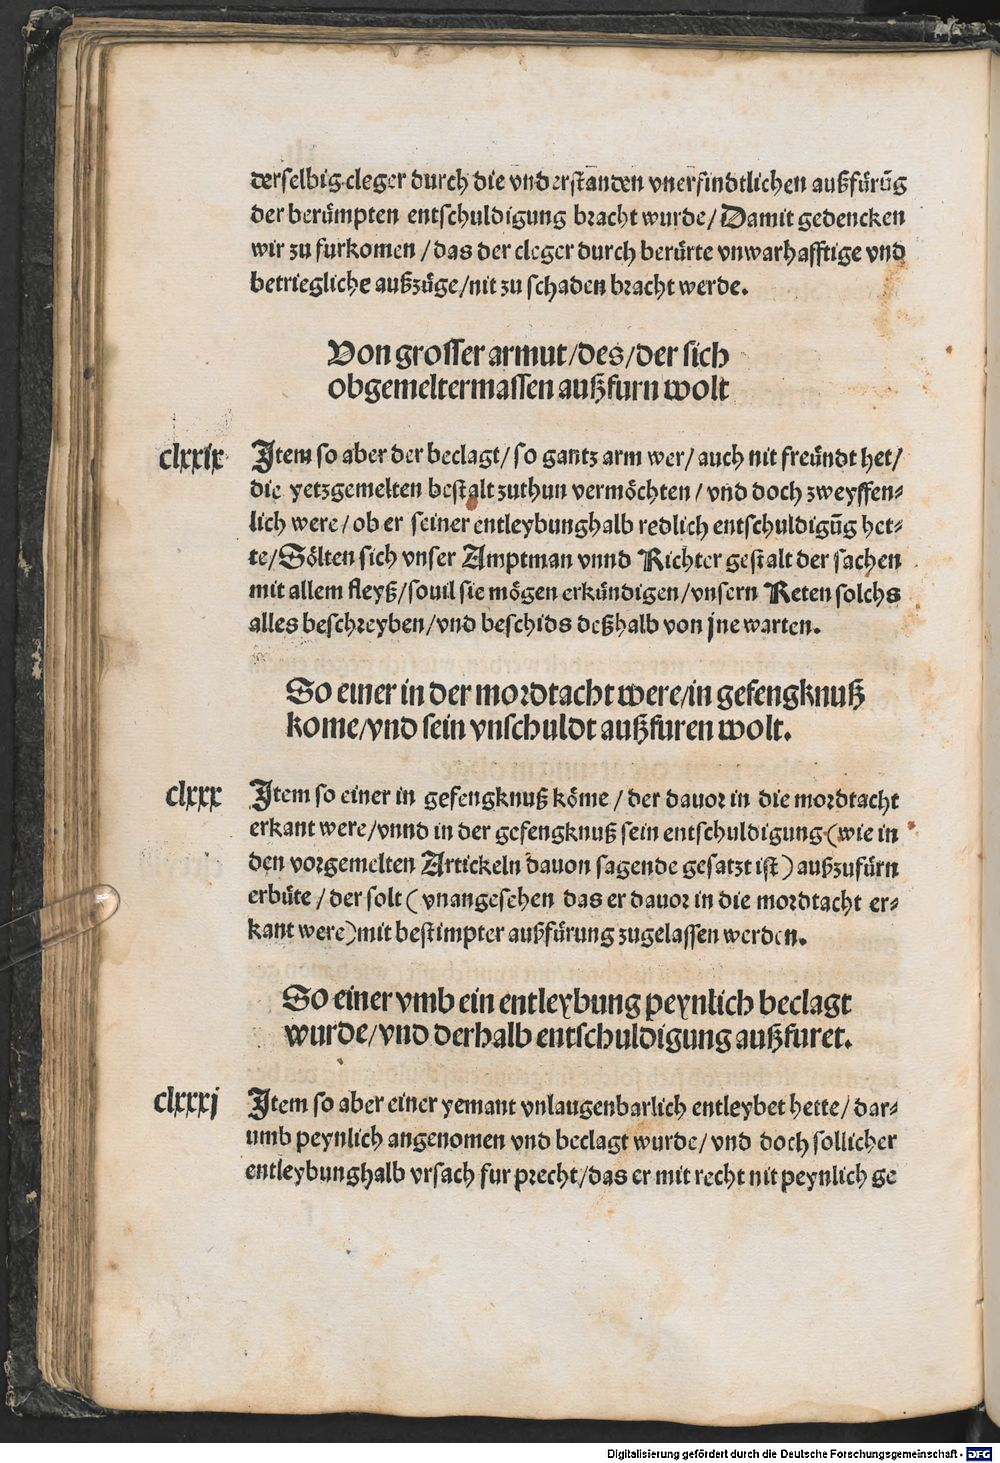 derselbig cleger durch die vnderstanden vnerfindtlichen außfürūg
der berümpten entschuldigung bracht wurde/ Damit gedencken
wir zu furkomen /das der cleger durch berürte vnwarhafftige vnd
betriegliche außzüge/nit zu schaden bracht werde.
Von grosser armut/des/der sich
obgemeltermassen außfurn wolt
clxxix Item so aber der beclagt/ so gantz arm wer/ auch nit freündt het/
die yetzgemelten bestalt zuthun vermöchten / vnd doch zweyffen-
lich were/ ob er seiner entleybunghalb redlich entschuldigūg het-
te/ Sölten sich vnser Amptman vnnd Richter gestalt der sachen
mit allem fleyß/souil sie mögen erkündigen/vnsern Reten solchs
alles beschreyben/vnd beschids deßhalb von jne warten.
So einer in der mordtacht were/in gefengknuß
kome/vnd sein vnschuldt außfuren wolt.
clxxx Item so einer in gefengknuß köme / der dauor in die mordtacht
erkant were/vnnd in der gefengknuß sein entschuldigung (wie in
den vorgemelten Artickeln dauon sagende gesatzt ist) außzufürn
erbüte / der solt ( vnangesehen das er dauor in die mordtacht er-
kant were)mit bestimpter außfürung zugelassen werden.
So einer vmb ein entleybung peynlich beclagt
wurde/vnd derhalb entschuldigung außfuret.
clxxxj Item so aber einer yemant vnlaugenbarlich entleybet hette/ dar-
umb peynlich angenomen vnd beclagt wurde/ vnd doch sollicher
entleybunghalb vrsach fur precht/das er mit recht nit peynlich ge
Digitalisierung gefördert durch die Deutsche Forschungsgemeinschaft - DFG